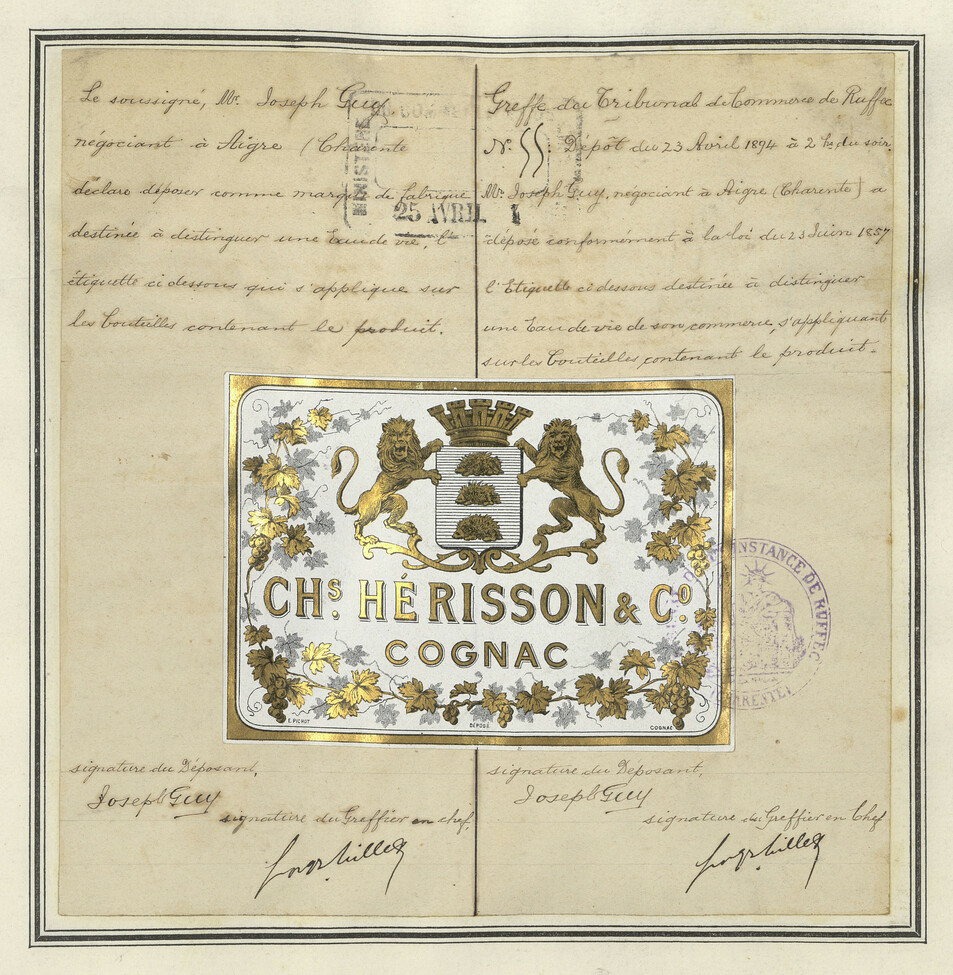 Le soussigné, Mr. Joseph Guy
négociant à Aigre (Charente
déclare déposer comme marque de fabrique
destinée à distinguer une Eau de vie, l'
étiquette ci dessous qui s'applique sur
les bouteilles contenant le produit.
MINISTÈRE
25 AVRIL
Greffe du Tribunal de Commerce de Ruffec
No. 55. Dépôt du 23 Avril 1894 à 2 hs du soir.
Mr. Joseph Guy, négociant à Aigre (Charente) a
déposé conformément à la loi du 23 Juin 1857
l'Etiquette ci dessous destinée à distinguer
une Eau de vie de son commerce, s'appliquant
sur les bouteilles contenant le produit.
CHs. HÉRISSON & Co.
COGNAC
E. PICHOT
DÉPOSÉ
COGNAC
INSTANCE DE RUFFEC
signature du Déposant,
Joseph Guy
signature du Greffier en chef,
signature du Deposant,
Joseph Guy
signature du Greffier en Chef